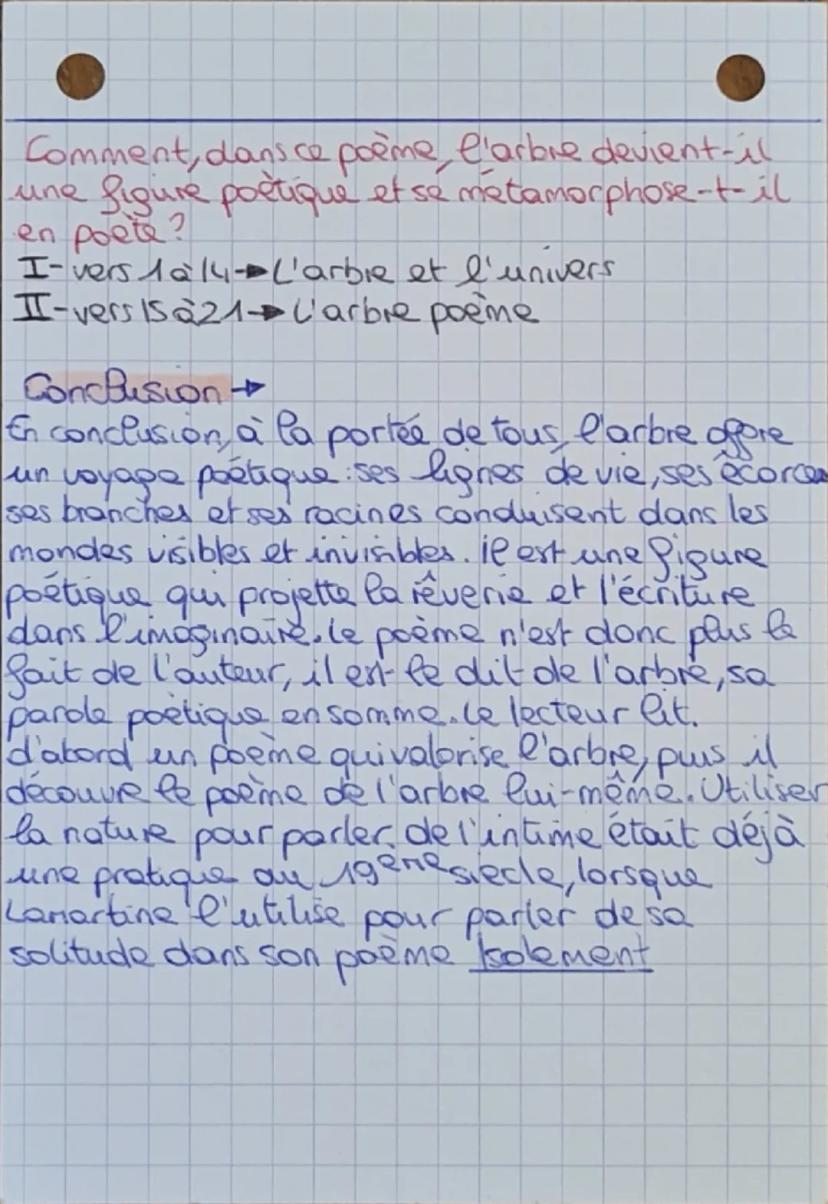 Comment, dans ce poème, l'arbre devient-il
une figure poètique et se métamorphose-t-il
en poète?
I-vers 1 à 14→L'arbre et l'univers
II-vers 15 à 21→L'arbre poème
Conclusion→
En conclusion, à la portée de tous, l'arbre offre
un voyage poétique : ses lignes de vie, ses écorces
ses branches et ses racines conduisent dans les
mondes visibles et invisibles. il est une figure
poétique qui projette la rêverie et l'écriture
dans l'imaginaire. le poème n'est donc plus le
fait de l'auteur, il est le dit de l'arbre, sa
parole poètique en somme. Le lecteur lit.
d'abord un poème qui valorise l'arbre, puis il
découvre le poème de l'arbre lui-même. Utiliser
la nature pour parler de l'intime était déjà
une pratique au 19ème siècle, lorsque
Lamartine l'utilise pour parler de sa
solitude dans son poème Isolement